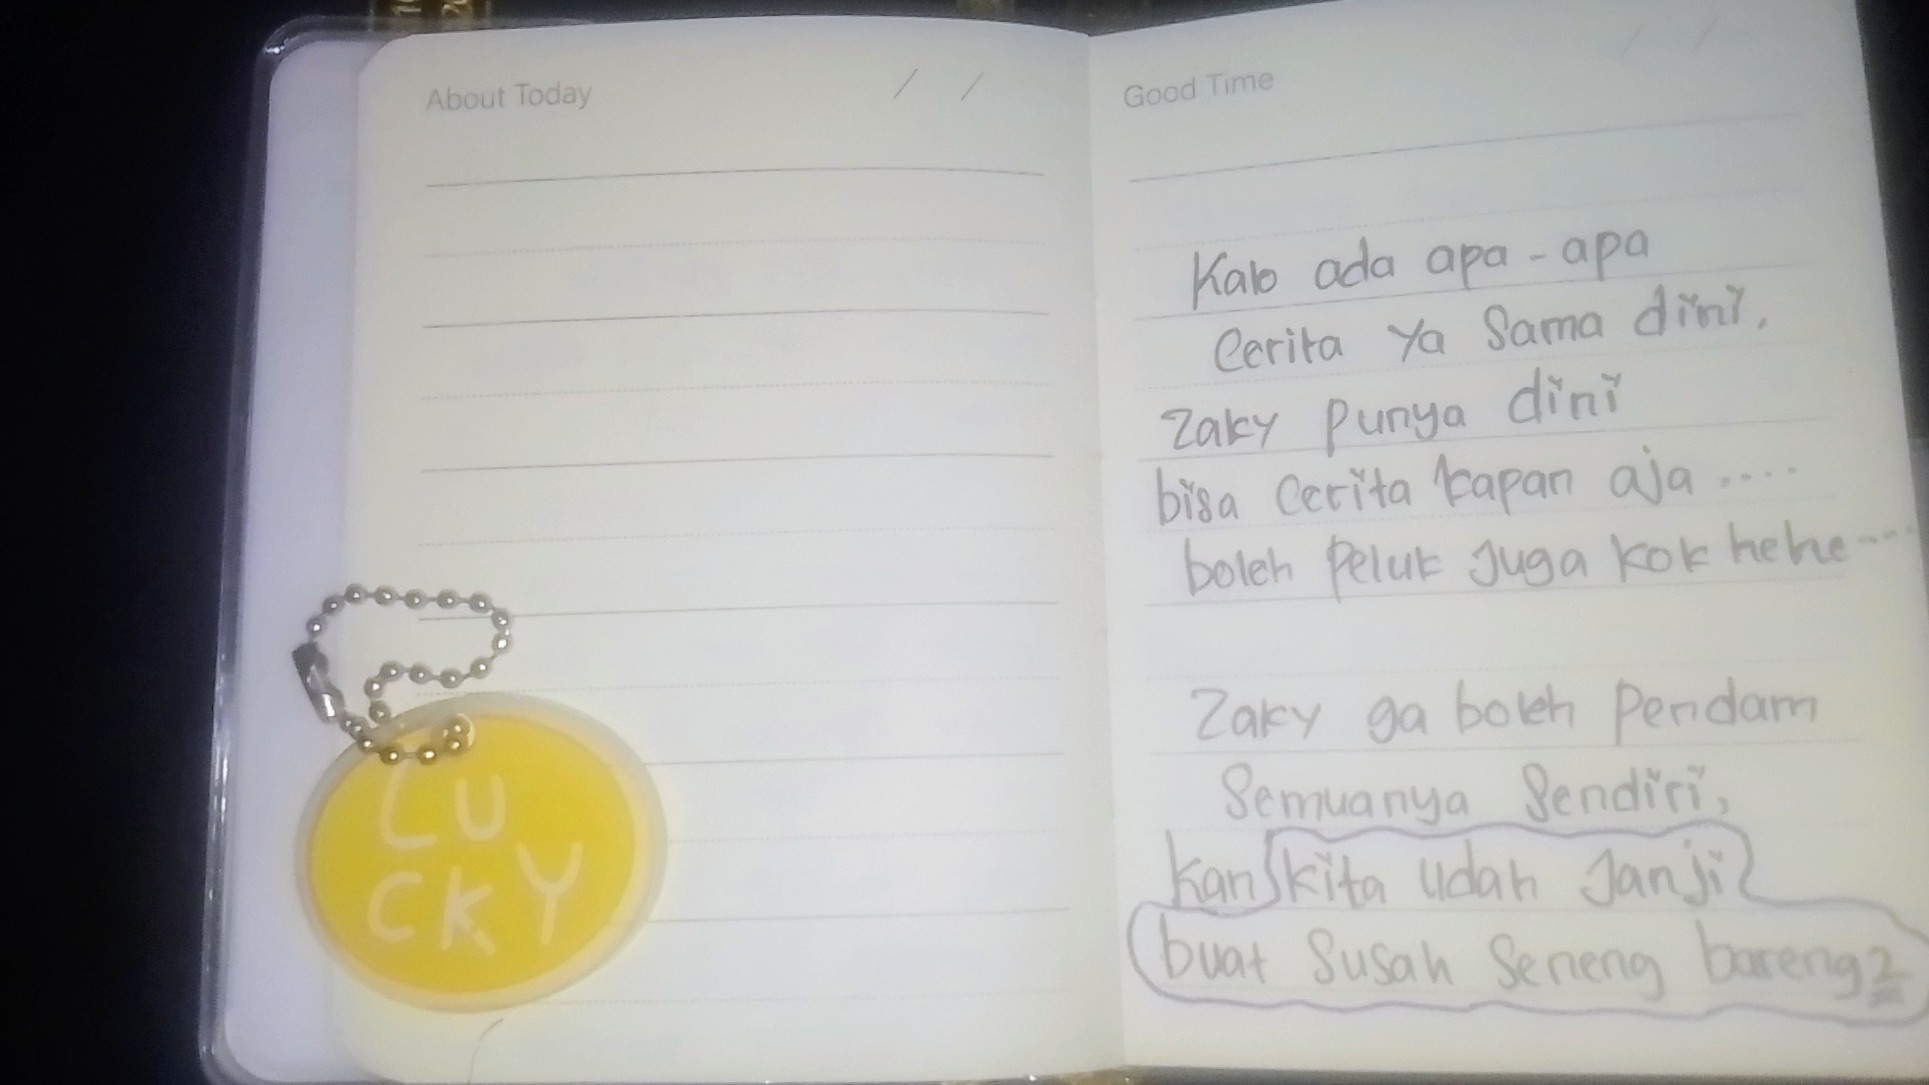 About Today / /
LU
CKY
Good Time / /
Kalo ada apa-apa
Cerita Ya Sama dini,
Zaky Punya dini
bisa Cerita kapan aja ....
boleh Peluk Juga kok hehe....
Zaky ga boleh Pendam
Semuanya Sendiri,
kan kita udah Janji
buat Susah Seneng bareng2